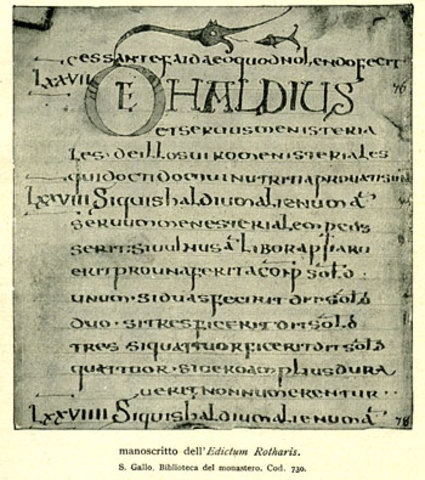 cessante faida eo quod nolendo fecit
LXXVII DE HALDIUS 76
et seruus menisteria
les. de illos uiro menisteriales
qui docti domui nutriti aprouati
LXXVIII Siquis haldium alienum a
seruum menesterialem pcus
serit. si uulnus a libor apparu
erit pro una ferita comp sold
unum. si duas fecirit dit sold
duo. si tres ficerit dit sold
tres si quattuor ficerit dit sold
quattuor. si uero amplius dura
uerit non numerentur
LXXVIIII Siquis haldium alienum a 78
manoscritto dell'Edictum Rotharis.
S. Gallo. Biblioteca del monastero. Cod. 730.